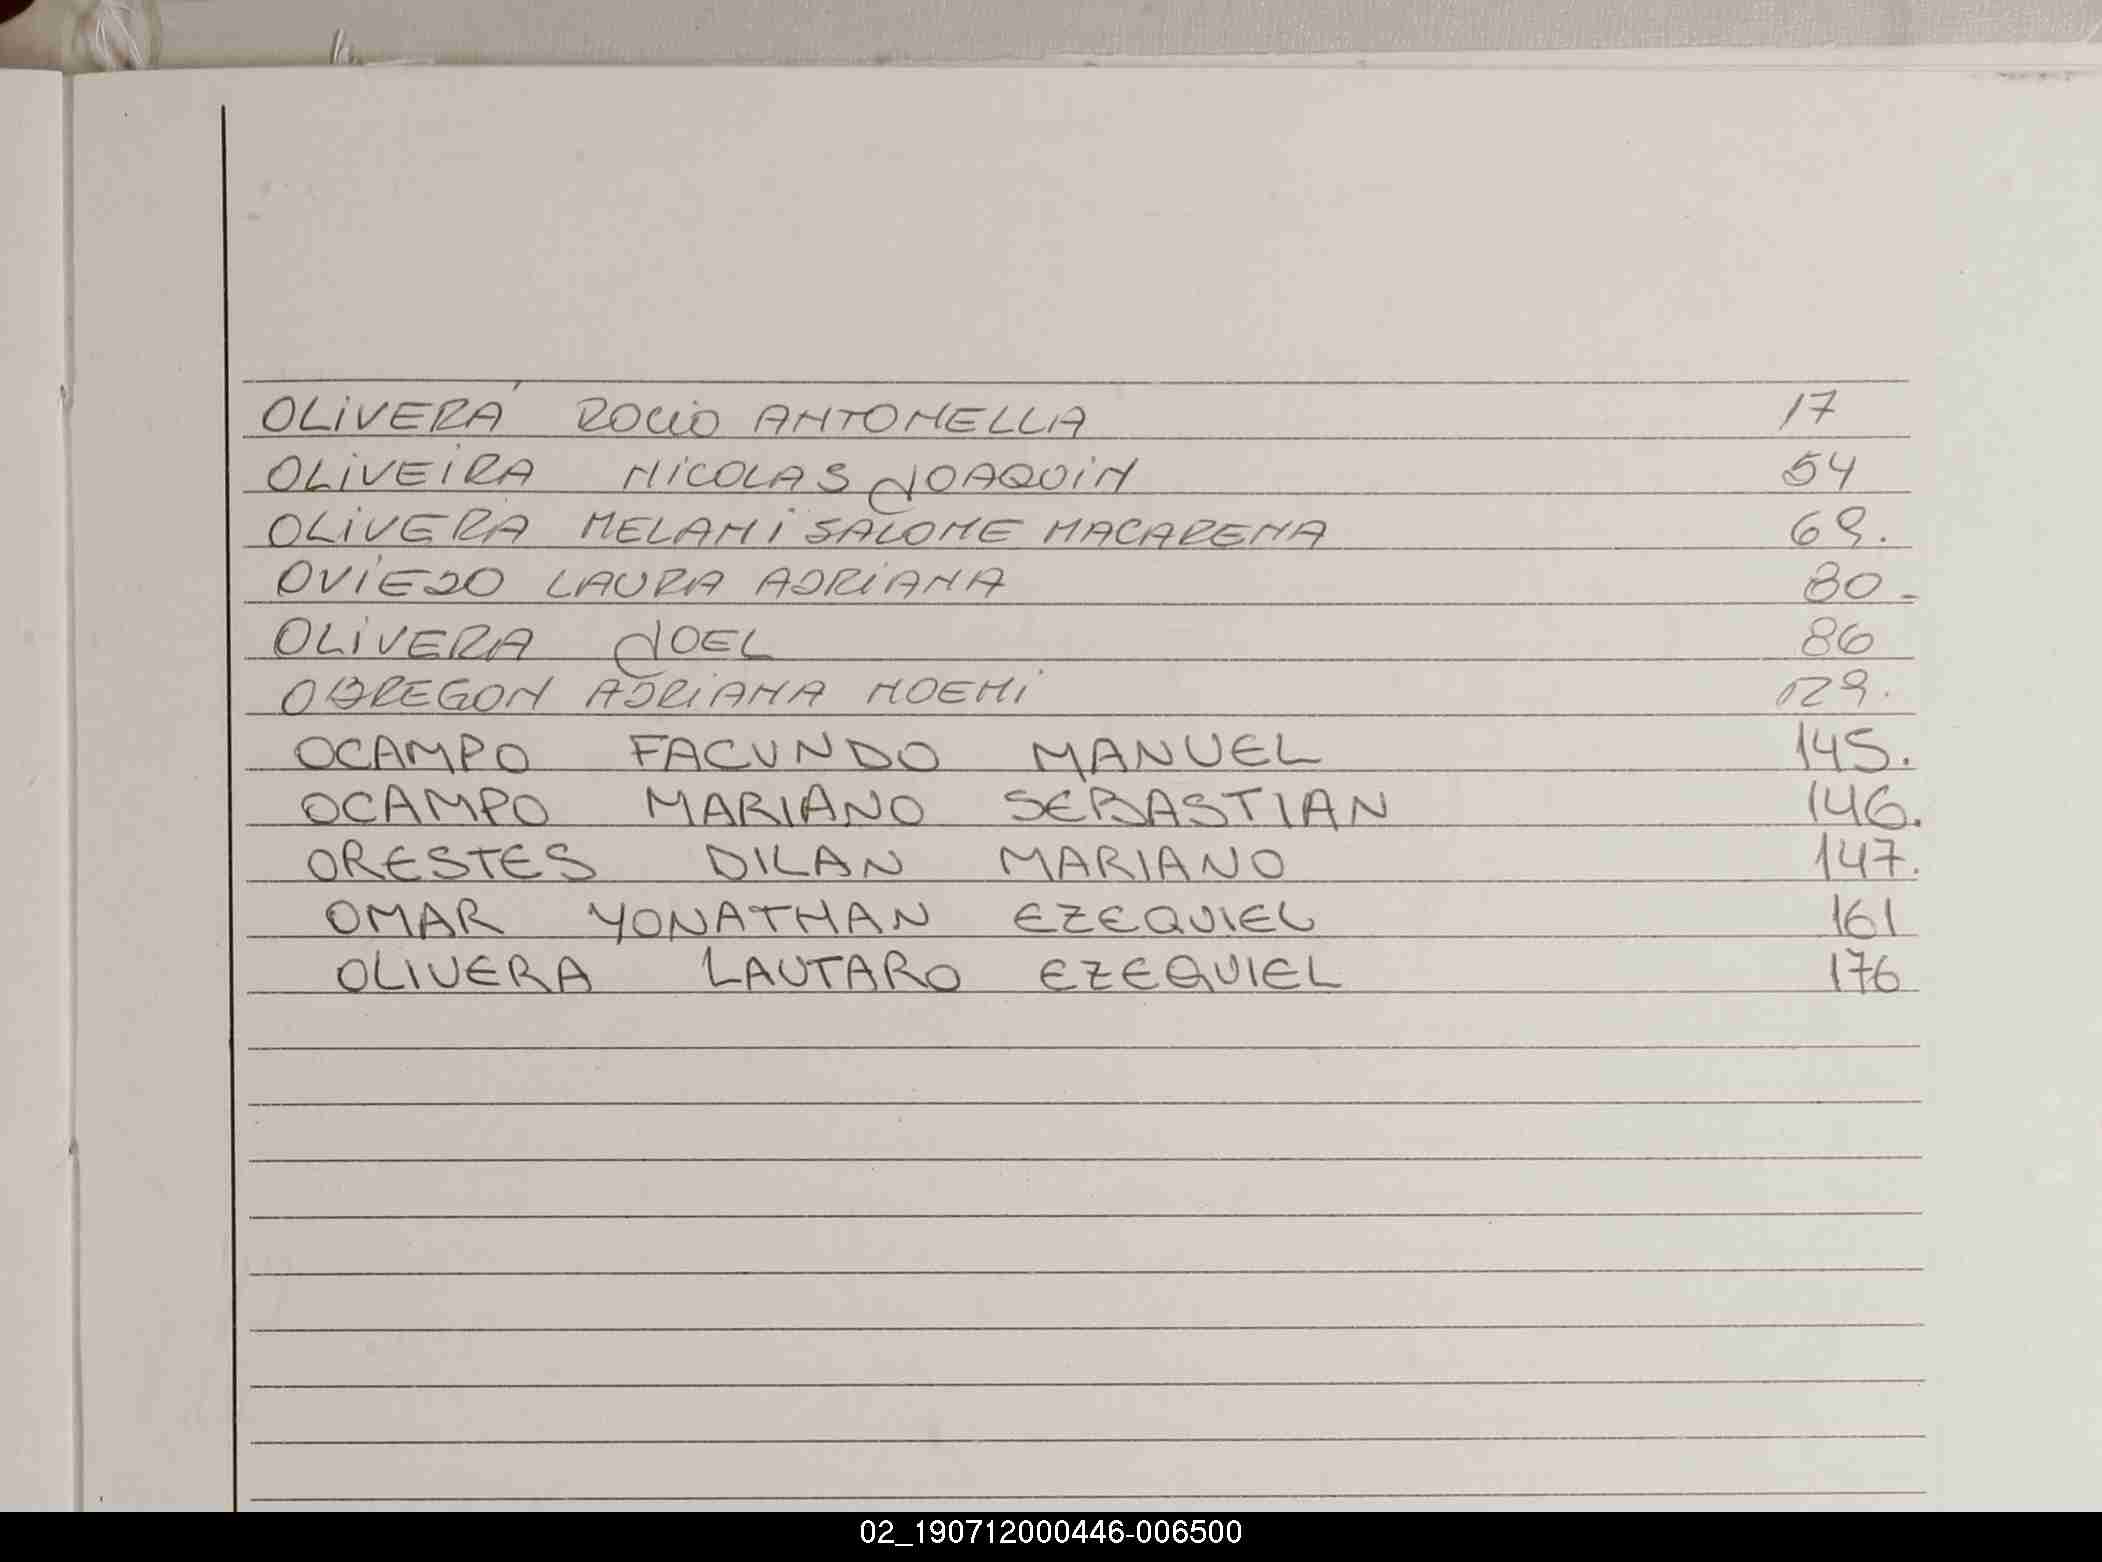 OLIVERA ROCIO ANTONELLA 17
OLIVEIRA NICOLAS JOAQUIN 54
OLIVERA MELANI SALOME MACARENA 69.
OVIEDO LAURA ADRIANA 80.
OLIVERA JOEL 86
OBREGON ADRIANA NOEMI 129.
OCAMPO FACUNDO MANUEL 145.
OCAMPO MARIANO SEBASTIAN 146.
ORESTES DILAN MARIANO 147.
OMAR YONATHAN EZEQUIEL 161
OLIVERA LAUTARO EZEQUIEL 176
02_190712000446-006500